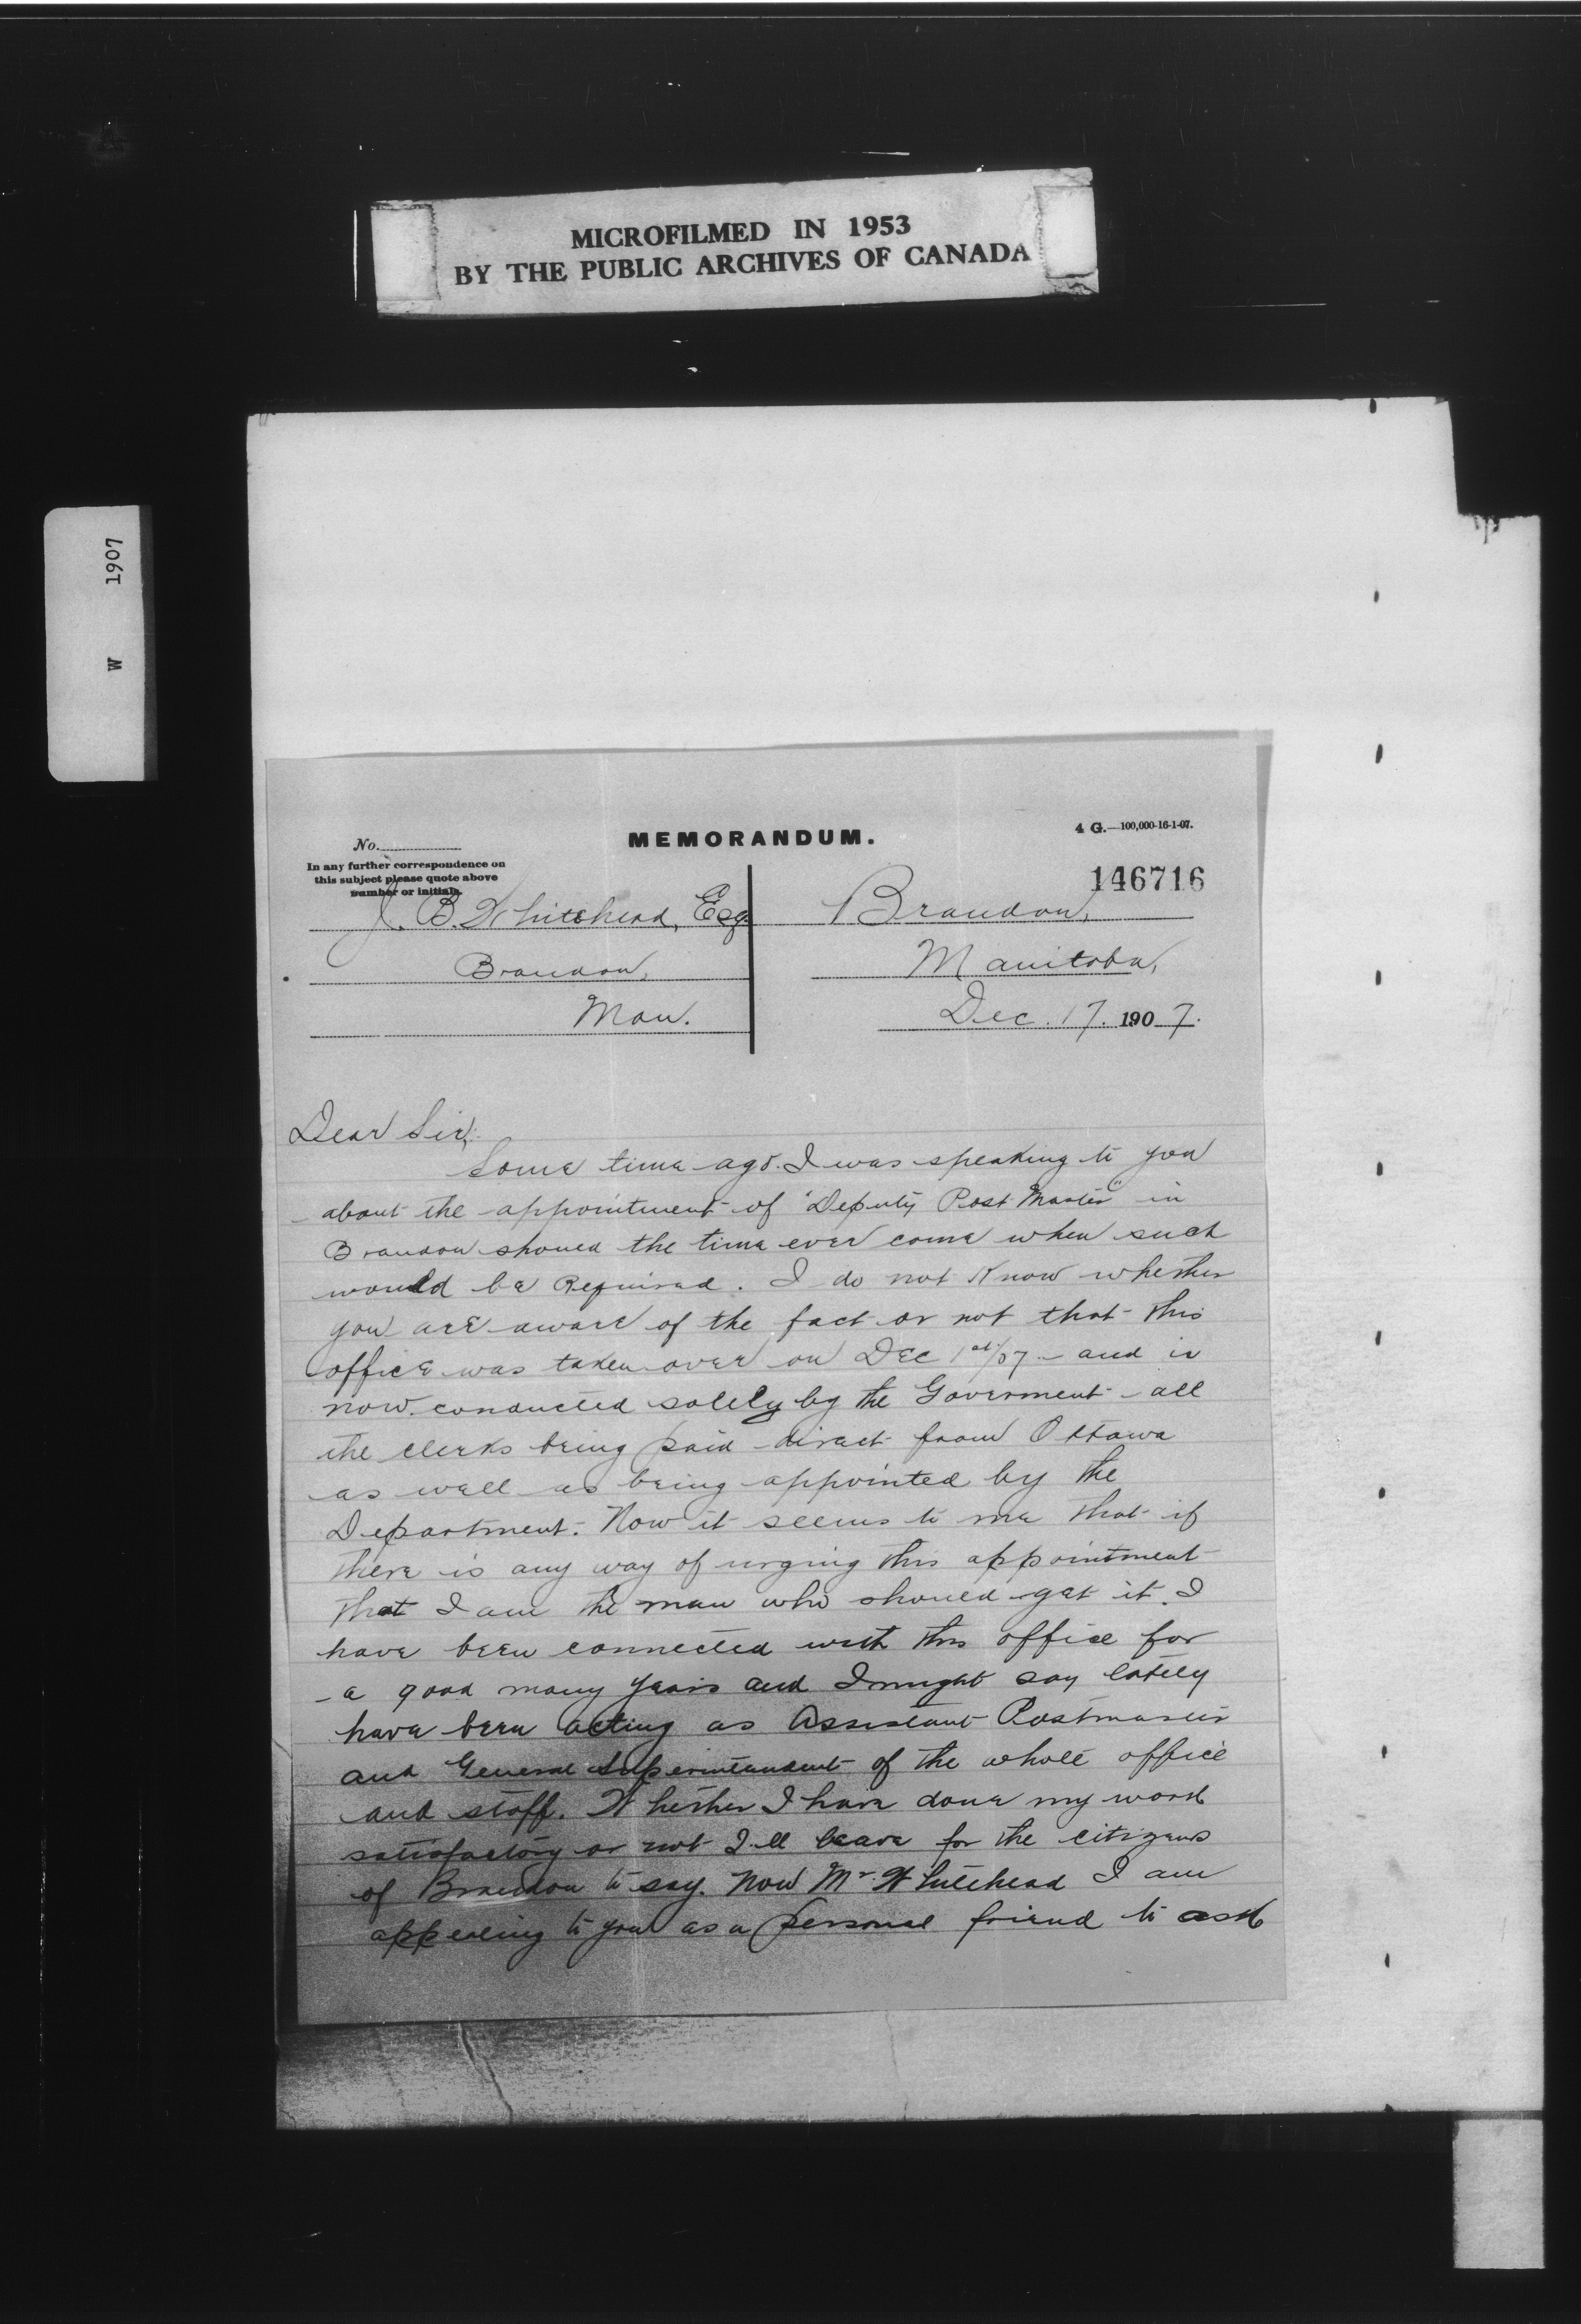 MICROFILMED IN 1953
BY THE PUBLIC ARCHIVES OF CANADA
W 1907
MEMORANDUM.
4 G.—100,000-16-1-07.
No.
In any further correspondence on
this subject please quote above
number or initials.
146716
J. B. Whitehead, Esq.
Brandon,
Man.
Brandon,
Manitoba,
Dec. 17. 1907.
Dear Sir,
Some time ago. I was speaking to you
about the appointment of "Deputy Post Master" in
Brandon should the time ever come when such
would be Required. I do not Know whether
you are aware of the fact or not that this
office was taken over on Dec 1st/07 - and is
now conducted solely by the Goverment - all
the clerks being paid direct from Ottawa
as well as being appointed by the
Department. Now it seems to me that if
there is any way of urging this appointment
that I am the man who should get it. I
have been connected with this office for
a good many years and I might say lately
have been acting as Assistant Postmaster
and General Superintendent of the whole office
and staff. Whether I have done my work
satisfactory or not I'll leave for the citizens
of Brandon to say. Now Mr. Whitehead I am
appealing to you as a personal friend to ask